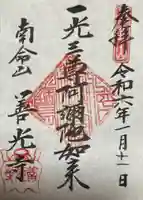 奉拝
令和六年一月十一日
一光三尊阿弥陀如来
南命山
善光寺